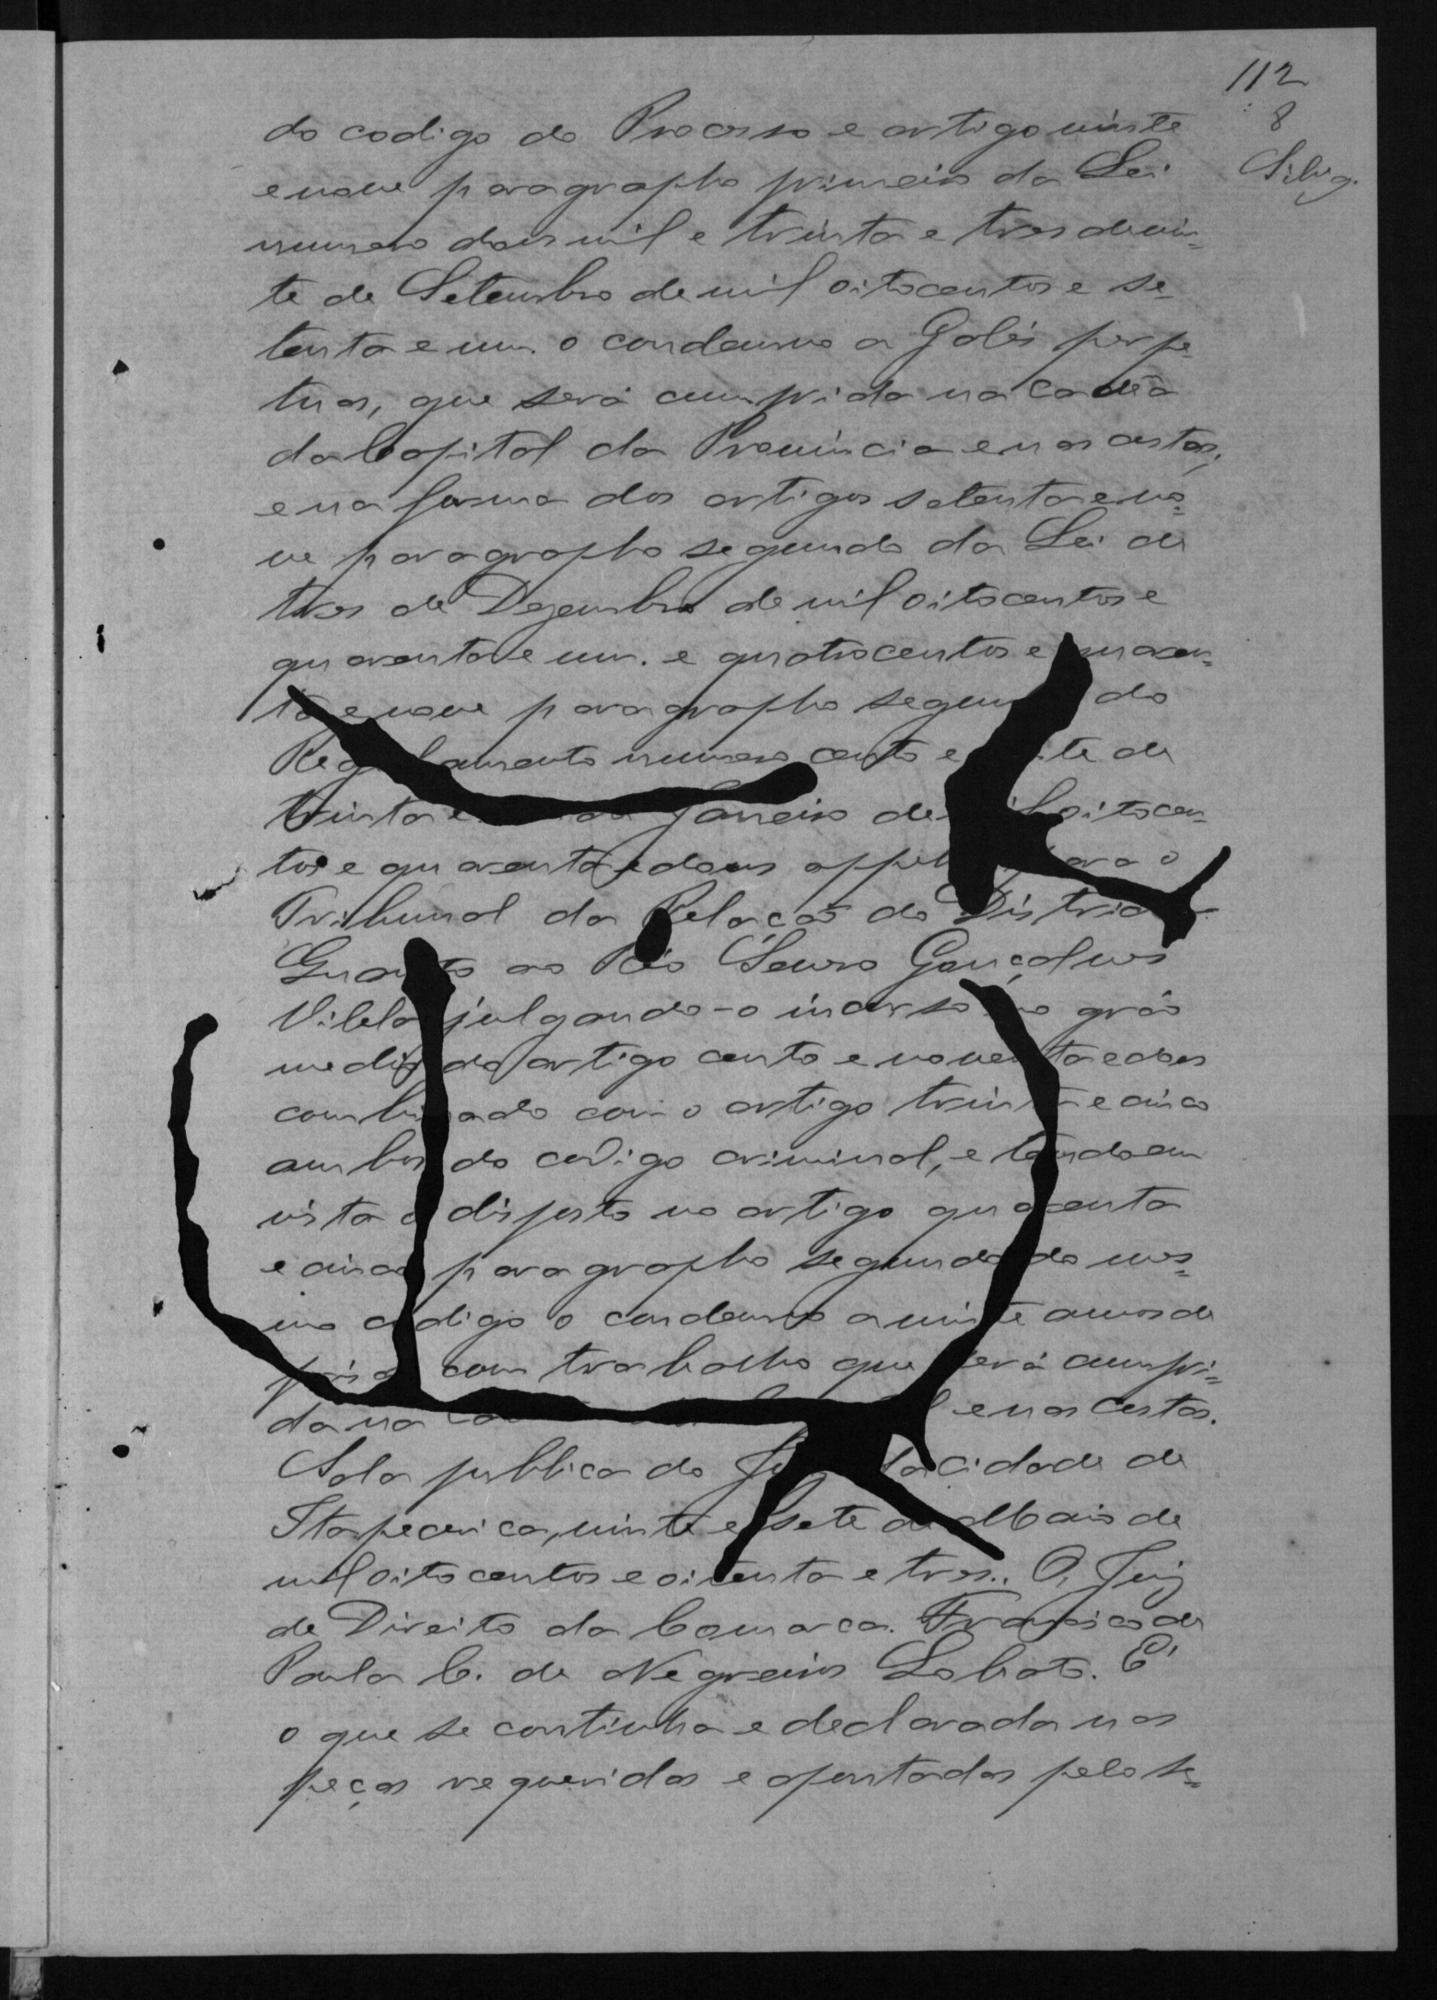 112
8
Silvª.
do codigo do Processo e artigo vinte
e nove paragrapho primeiro da Lei
numero dous mil e trinta e tres de vin-
te de Setembro de mil oitocentos e se-
tenta e um o condemno a Galés perpe-
tuas, que será cumprida na cadêa
da Capital da Provincia e nas custas,
e na forma dos artigos setenta e no-
ve paragrapho segundo da Lei de
tres de Dezembro de mil oitocentos e
quarenta e um. e quatrocentos e quaren-
ta e nove paragrapho segun do
Regulamento numero cento e te de
trinta e Janeiro de oitocen-
tos e quarenta e dous appel para o
Tribunal da Relação do Distric
Quanto ao Réo Gonçalves
Vilela julgando-o incurso no gráo
medio do artigo cento e noventa e dous
combinado com o artigo trinta e cinco
ambos do codigo criminal, e tendo em
vista o disposto no artigo quarenta
e cinco paragrapho segundo do mes-
mo codigo o condemno a vinte annos de
prisão com trabalho que será cumpri-
da na e nas custas.
Sala publica do da cidade de
Itapecerica, vinte e sete de Maio de
mil oitocentos e oitenta e tres.. O, Juiz
de Direito da Comarca. Francisco de
Paula C. de Negreiros Lobato. É
o que se continha e declarada nas
peças requeridas e apontadas pelo se-